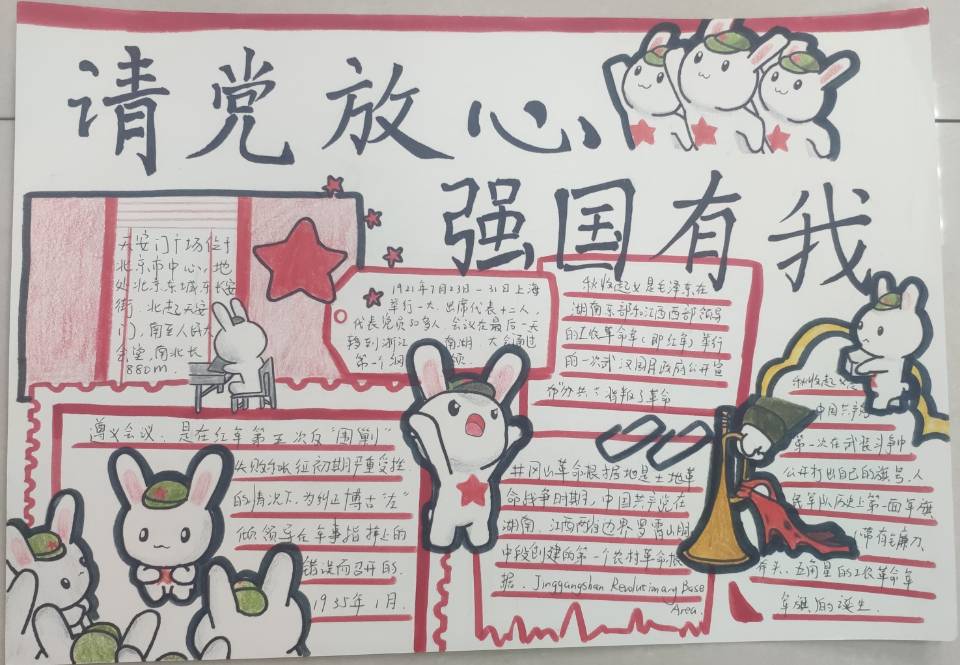 请党放心
强国有我
天安门广场位于
北京市中心，地
处北京东城东长安
街，北起天安
门，南至人民大
会堂，南北长
880m.
1921年7月23日—31日上海
举行一大 出席代表十二人，
代表党员50多人，会议在最后一天
移到浙江 南湖 大会通过
第一个纲 领
秋收起义是毛泽东在
湖南东部和江西西部领导
的工农革命军（即红军）举行
的一次武 汉国民政府公开宣
布“分共” 背叛了革命
秋收起义
中国共产党
第一次在武装斗争中
公开打出自己的旗号，人
民军队历史上第一面军旗
带有镰刀、
斧头、五角星的工农革命军
军旗的诞生.
遵义会议，是在红军第五次反“围剿”
失败和长征初期严重受挫
的情况下，为纠正博古“左”
倾领导在军事指挥上的
错误而召开的.
1935年1月.
井冈山革命根据地是土地革
命战争时期，中国共产党在
湖南、江西两省边界罗霄山脉
中段创建的第一个农村革命根
据. Jinggangshan Revolutionary Base
Area.